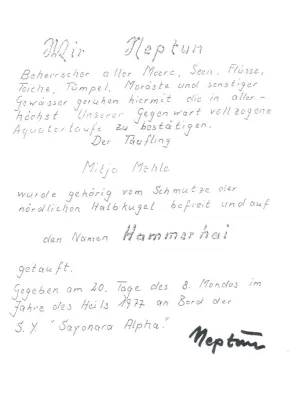 Wir Neptun
Beherrscher aller Meere, Seen, Flüsse,
Teiche, Tümpel, Moräste und sonstiger
Gewässer geruhen hiermit die in aller-
höchst Unserer Gegenwart vollzogene
Äquatortaufe zu bestätigen.
Der Täufling
Mitja Mehle
wurde gehörig vom Schmutze der
nördlichen Halbkugel befreit und auf
den Namen Hammerhai
getauft.
Gegeben am 20. Tage des 8. Mondes im
Jahre des Heils 1977 an Bord der
S.Y. "Sayonara Alpha."
Neptun